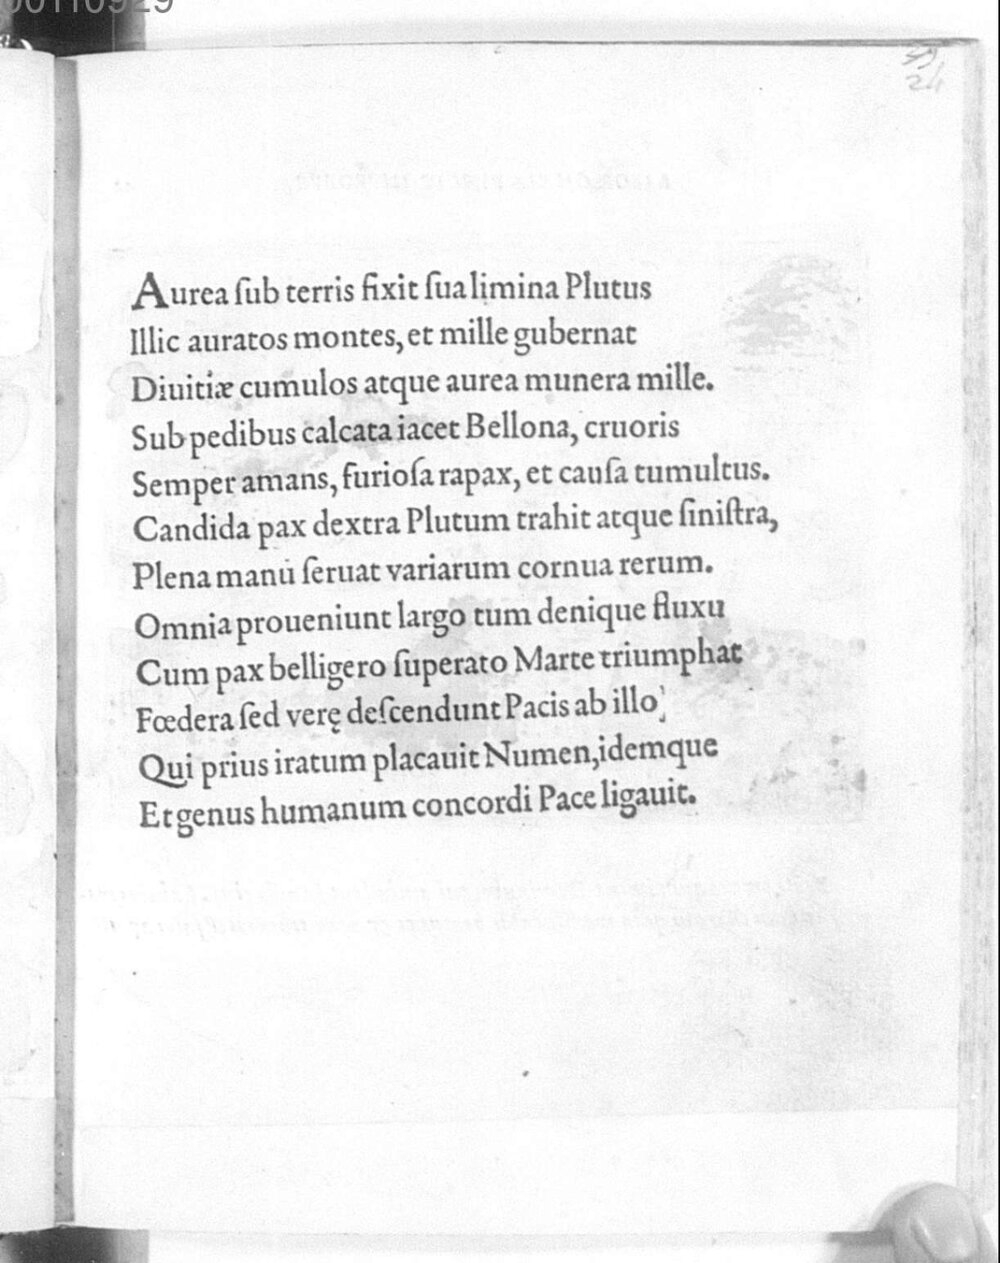 00110929
24
Aurea ſub terris fixit ſua limina Plutus
Illic auratos montes, et mille gubernat
Diuitiæ cumulos atque aurea munera mille.
Sub pedibus calcata iacet Bellona, cruoris
Semper amans, furioſa rapax, et cauſa tumultus.
Candida pax dextra Plutum trahit atque ſiniſtra,
Plena manu ſeruat variarum cornua rerum.
Omnia proueniunt largo tum denique fluxu
Cum pax belligero ſuperato Marte triumphat
Fœdera ſed verę deſcendunt Pacis ab illo,
Qui prius iratum placauit Numen, idemque
Et genus humanum concordi Pace ligauit.